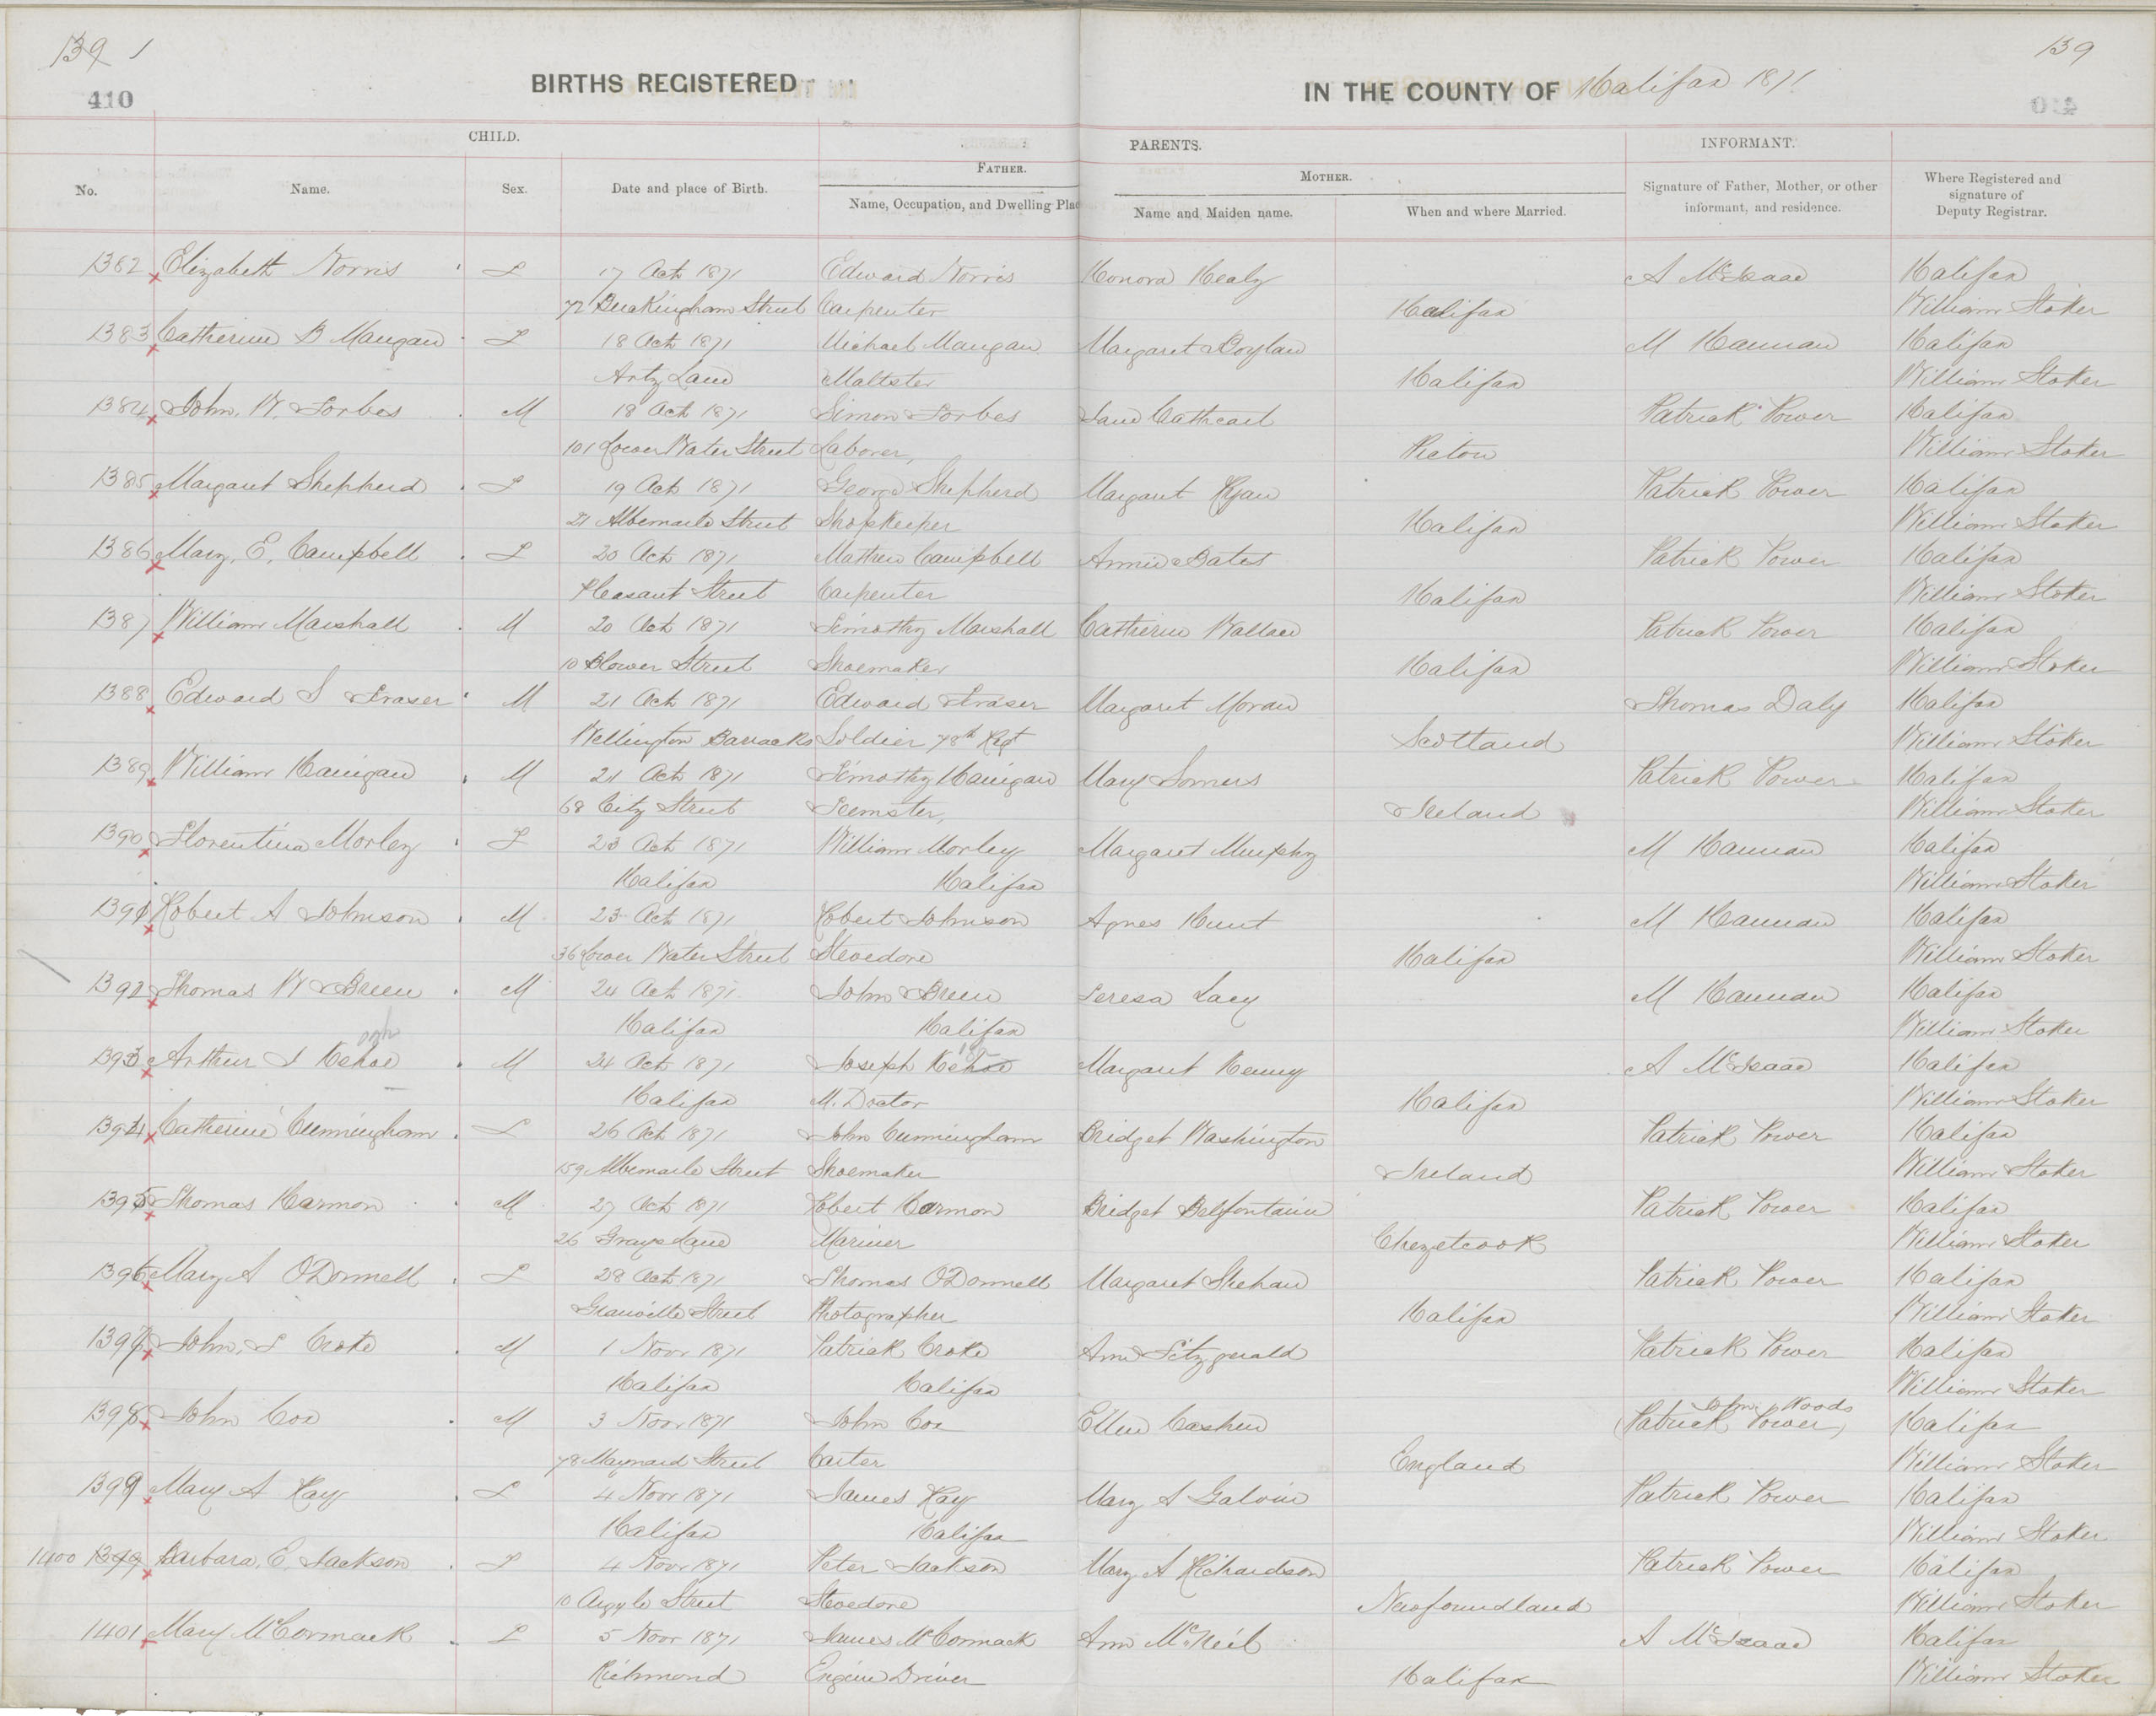 139 1 139
410
BIRTHS REGISTERED IN THE COUNTY OF Halifax 1871
CHILD. PARENTS. INFORMANT.
FATHER. MOTHER.
No. Name. Sex. Date and place of Birth. Name, Occupation, and Dwelling Plac Name and Maiden name. When and where Married. Signature of Father, Mother, or other informant, and residence. Where Registered and signature of Deputy Registrar.
1382 Elizabeth Norris F 17 Oct 1871 Edward Norris Honora Healy A McIsaac Halifax
72 Buckingham Street Carpenter Halifax William Stoker
1383 Catherine B Mangan F 18 Oct 1871 Michael Mangan Margaret Boylan M Hannan Halifax
Artz Lane Maltster Halifax William Stoker
1384 John. W. Forbes M 18 Oct 1871 Simon Forbes Jane Cathcart Patrick Power Halifax
101 Lower Water Street Laborer, Pictou William Stoker
1385 Margaret Shepherd F 19 Oct 1871 George Shepherd Margaret Ryan Patrick Power Halifax
21 Albemarle Street Shopkeeper Halifax William Stoker
1386 Mary. E. Campbell F 20 Oct 1871 Mathew Campbell Annie Bates Patrick Power Halifax
Pleasant Street Carpenter Halifax William Stoker
1387 William Marshall M 20 Oct 1871 Timothy Marshall Catherine Wallace Patrick Power Halifax
10 Blower Street Shoemaker Halifax William Stoker
1388 Edward S Fraser M 21 Oct 1871 Edward Fraser Margaret Moran Thomas Daly Halifax
Wellington Barracks Soldier 78th Regt Scotland William Stoker
1389 William Hanigan M 21 Oct 1871 Timothy Hanigan Mary Somers Patrick Power Halifax
68 City Street Teemster, Ireland William Stoker
1390 Florentina Morley F 23 Oct 1871 William Morley Margaret Murphy M Hannan Halifax
Halifax Halifax William Stoker
1391 Robert A Johnson M 23 Oct 1871 Robert Johnson Agnes Hunt M Hannan Halifax
36 Lower Water Street Stevedore Halifax William Stoker
1392 Thomas W Breen M 24 Oct 1871 John Breen Teresa Lacy M Hannan Halifax
Halifax Halifax William Stoker
1393 Arthur J Kehoe M 24 Oct 1871 Joseph Kehoe Margaret Kenny A McIsaac Halifax
Halifax M. Doctor Halifax William Stoker
1394 Catherine Cunningham F 26 Oct 1871 John Cunningham Bridget Washington Patrick Power Halifax
159 Albemarle Street Shoemaker Ireland William Stoker
1395 Thomas Harmon M 27 Oct 1871 Robert Harmon Bridget Belfontaine Patrick Power Halifax
26 Grays Lane Mariner Chezetcook William Stoker
1396 Mary A O'Donnell F 28 Oct 1871 Thomas O'Donnell Margaret Shehan Patrick Power Halifax
Granville Street Photographer Halifax William Stoker
1397 John. F Croke M 1 Novr 1871 Patrick Croke Ann Fitzgerald Patrick Power Halifax
Halifax Halifax William Stoker
John Woods
1398 John Cox M 3 Novr 1871 John Cox Ellen Cashen (Patrick Power) Halifax
78 Maynard Street Carter England William Stoker
1399 Mary A Hay F 4 Novr 1871 James Hay Mary A Galvin Patrick Power Halifax
Halifax Halifax William Stoker
1400 1399 Barbara. E. Jackson F 4 Novr 1871 Peter Jackson Mary A Richardson Patrick Power Halifax
10 Argyle Street Stevedore Newfoundland William Stoker
1401 Mary McCormack F 5 Novr 1871 James McCormack Ann McNeil A McIsaac Halifax
Richmond Engine Driver Halifax William Stoker